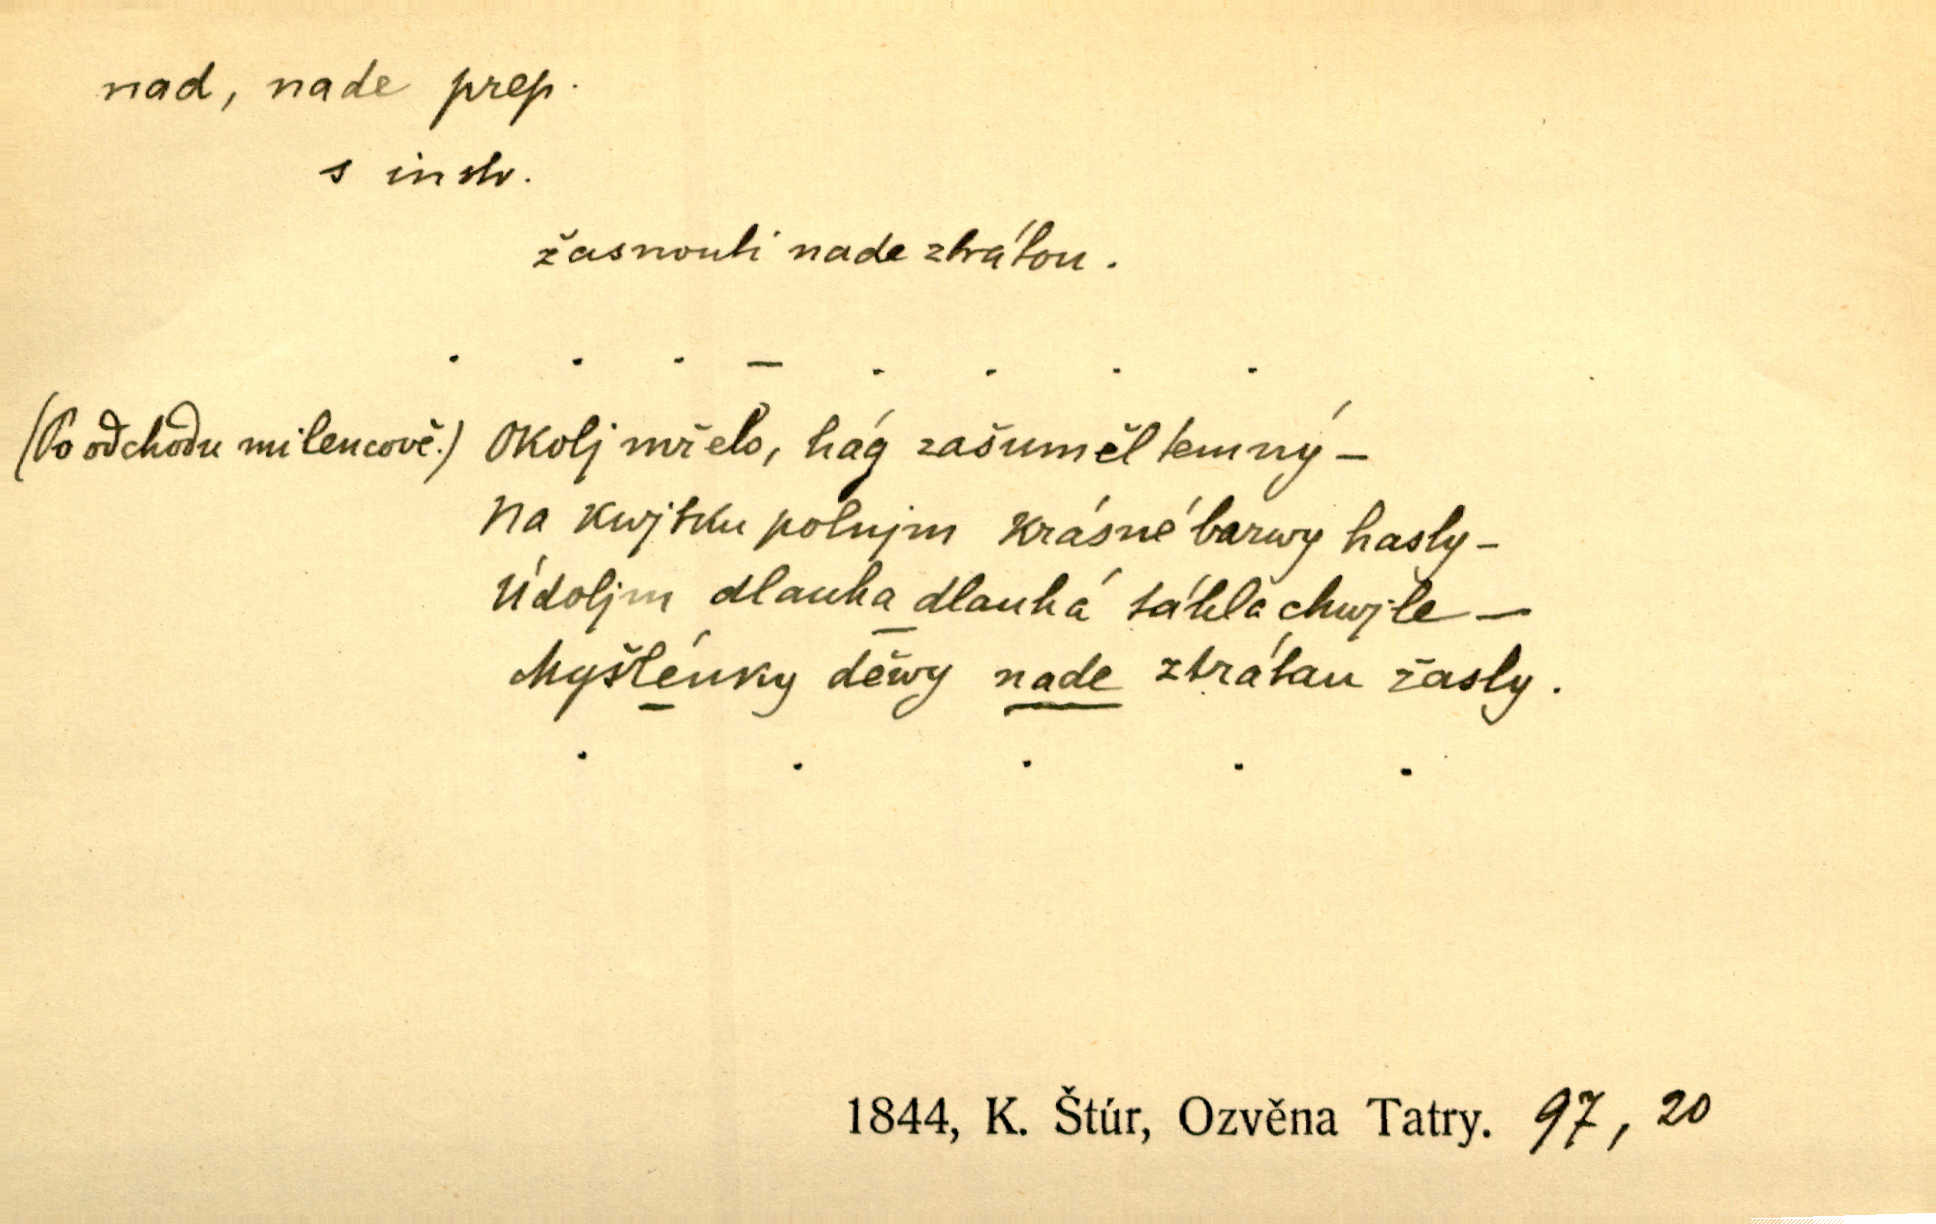 nad, nade prep.
s instr.
žasnouti nade ztrátou.
. . . – . . . .
(Po odchodu milencově.) Okolj mřelo, hág zašuměl temný –
Na kwjtku polnjm krásné barwy hasly –
Údoljm dlauha dlauhá táhla chwjle –
Myšlénky děwy nade ztrátau žasly.
. . . . .
1844, K. Štúr, Ozvěna Tatry. 97, 20